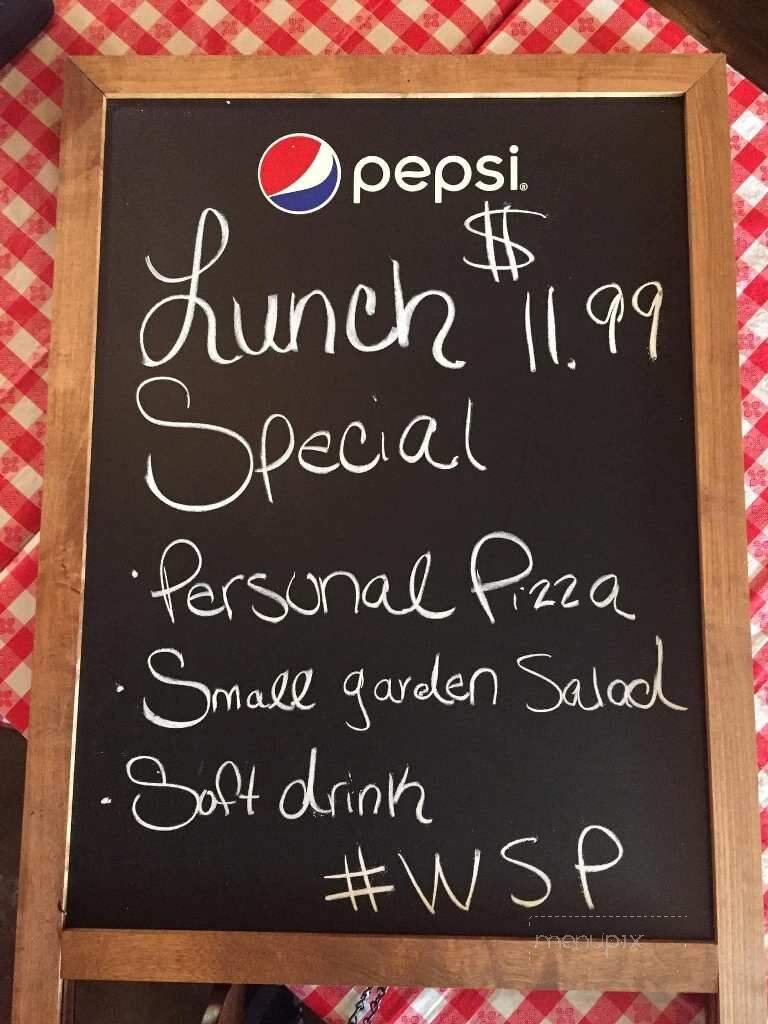 pepsi®
Lunch $ 11.99
Special
· Personal Pizza
· Small garden Salad
· Soft drink
#WSP
menupix